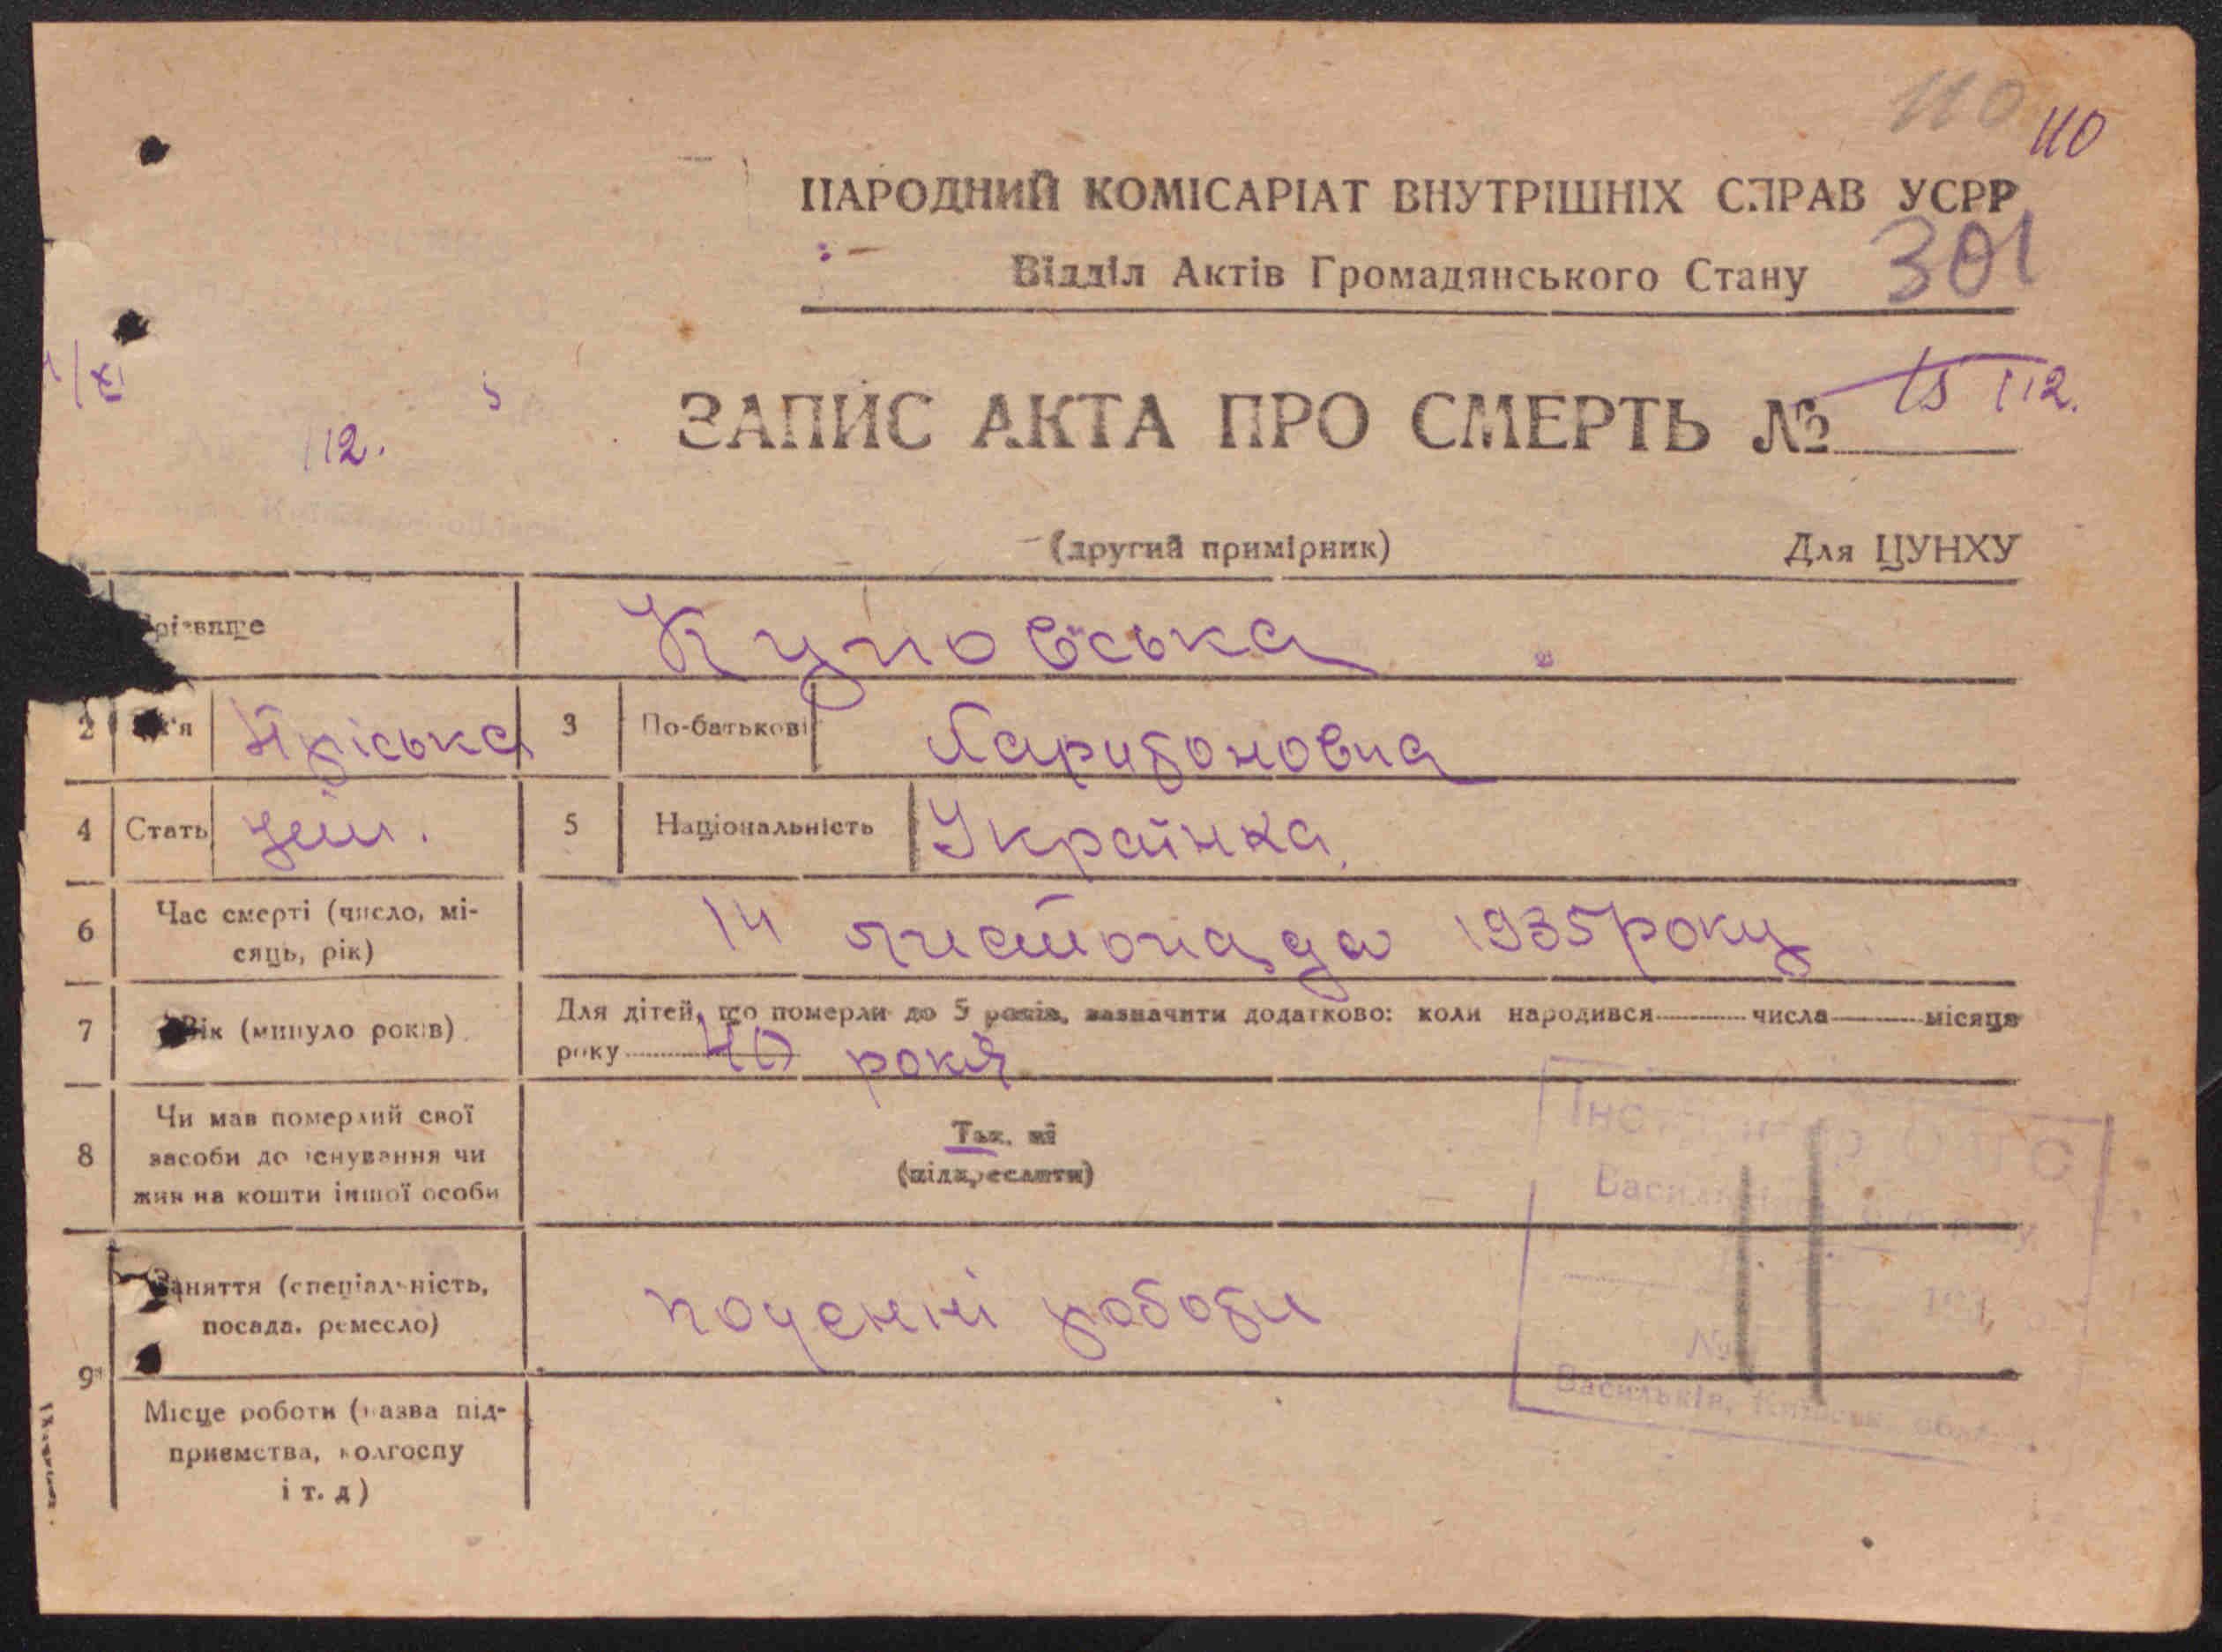 110
110
НАРОДНИЙ КОМІСАРІАТ ВНУТРІШНІХ СПРАВ УСРР
Відділ Актів Громадянського Стану
301
ЗАПИС АКТА ПРО СМЕРТЬ №
15 112.
112.
(другий примірник) Для ЦУНХУ
різвище
2 м'я Пріська 3 По-батькові Лариѳоновна
4 Стать жін. 5 Національність Українка
6 Час смерті (число, мі-
сяць, рік)
14 листопада 1935 року
7 Вік (минуло років)
Для дітей, що померли до 5 років, зазначити додатково: коли народився числа місяця
року 40 років
8 Чи мав померлий свої
засоби до існування чи
жив на кошти іншої особи
Так, ні
(підкреслити)
9 Заняття (спеціальність,
посада, ремесло)
поденні роботи
Місце роботи (назва під-
приємства, колгоспу
і т. д)
№
Васильків, Київськ. обл.